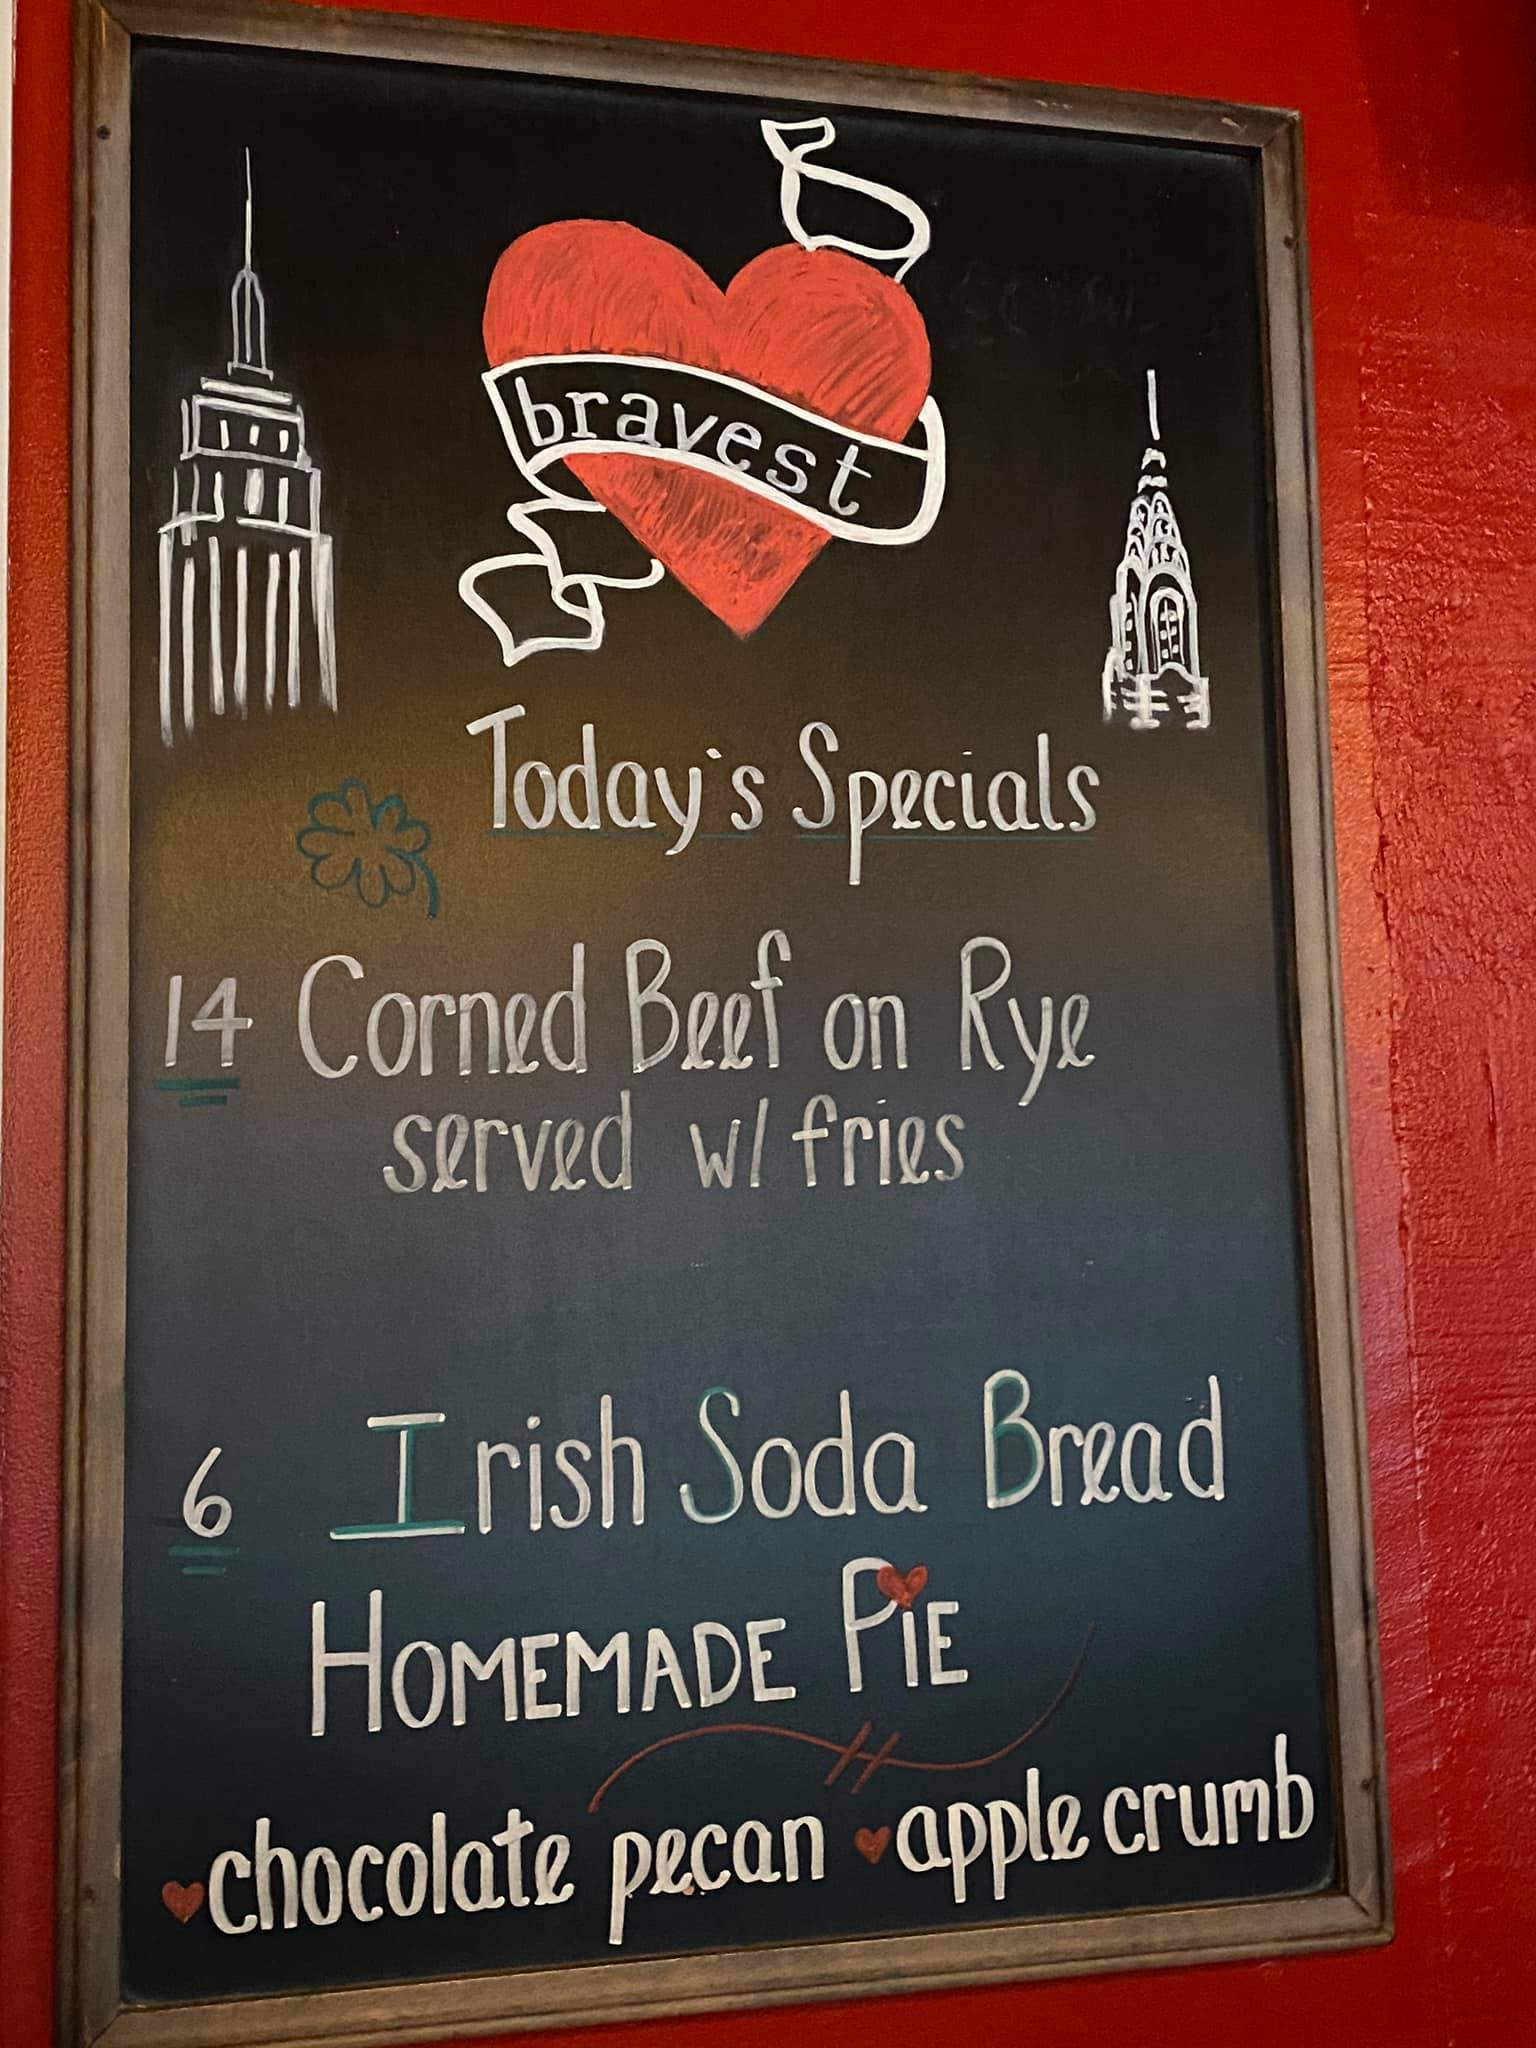 bravest
Today's Specials
14 Corned Beef on Rye
served w/ fries
6 Irish Soda Bread
HOMEMADE PiE
chocolate pecan apple crumb